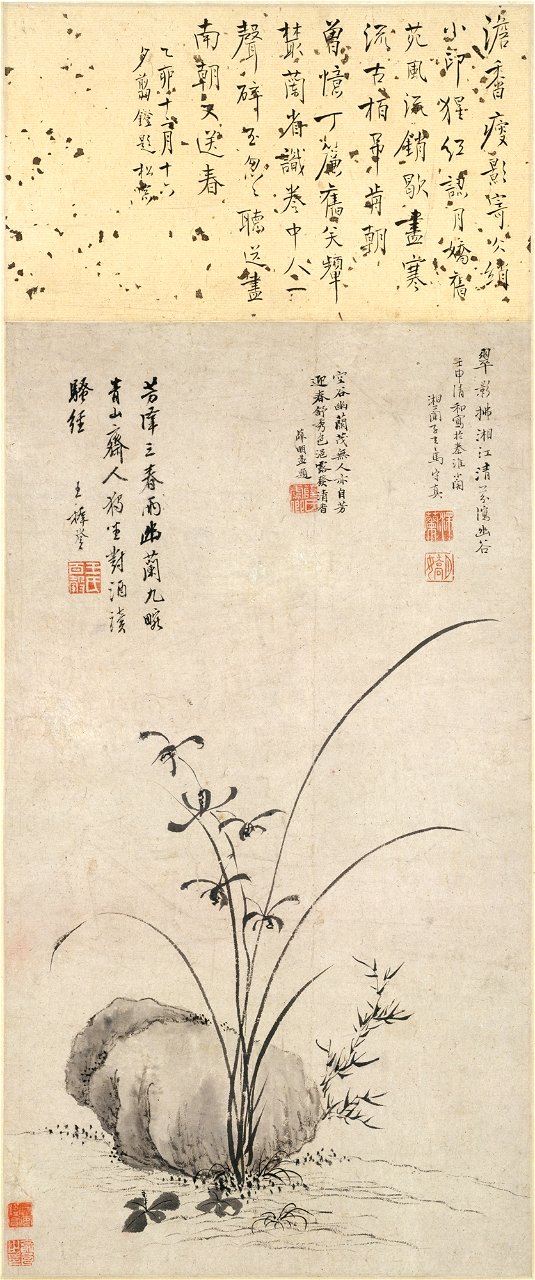 澹香瘦影寄冰綃
小印猩紅認月嬌舊
苑風流銷歇盡寒
流古柏弔前朝
曾憶丁簾舊笑顰
叢蘭省識卷中人一
聲碎玉聽送盡
南朝又送春
乙卯十二月十六
夕翦鐙題
翠影拂湘江清芬瀉幽谷
壬申清和寫於秦淮閣
湘蘭子馬守真
空谷幽蘭茂無人亦自芳
迎春舒秀色浥露發清香
薛明益題
芳澤三春雨幽蘭九畹
青山齋人獨坐對酒讀
騷經
王穉登
王氏百穀